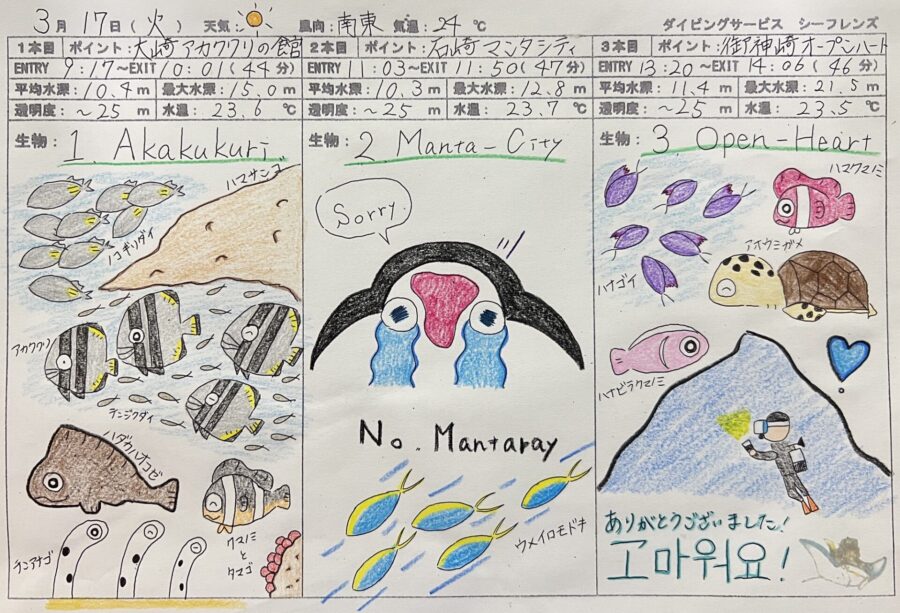 3月 17日(火) 天気: 風向:南東 気温:24℃ ダイビングサービス シーフレンズ
1本目 ポイント:大崎アカククリの館
ENTRY 9:17～EXIT 10:01(44分)
平均水深:10.4m 最大水深:15.0m
透明度:～25m 水温:23.6℃
生物: 1. Akakukuri
ハマサンゴ
ノコギリダイ
アカククリ
テンジクダイ
ハダカハオコゼ
クマノミ
と
タマゴ
チンアナゴ
2本目 ポイント:石崎マンタシティ
ENTRY 11:03～EXIT 11:50(47分)
平均水深:10.3m 最大水深:12.8m
透明度:～25m 水温:23.7℃
生物: 2. Manta-City
Sorry.
No. Mantaray
ウメイロモドキ
3本目 ポイント:御神崎オープンハート
ENTRY 13:20～EXIT 14:06(46分)
平均水深:11.4m 最大水深:21.5m
透明度:～25m 水温:23.5℃
生物: 3. Open-Heart
ハマクマノミ
アオウミガメ
ハナゴイ
ハナビラクマノミ
ありがとうございました!
고마워요!